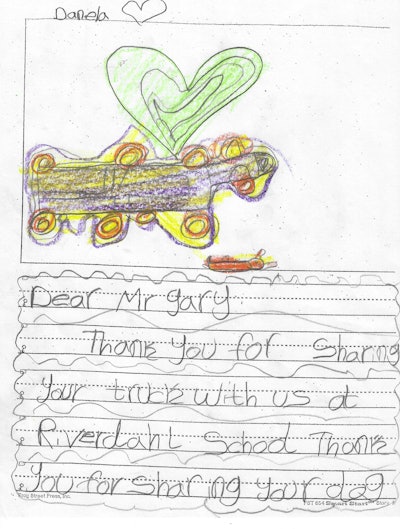 Danela
Dear Mr gary
Thank You for Sharing
Your truck with us at
Riverdahl School Thank
You for sharing your dog
Street Press, Inc.
Smart Start™